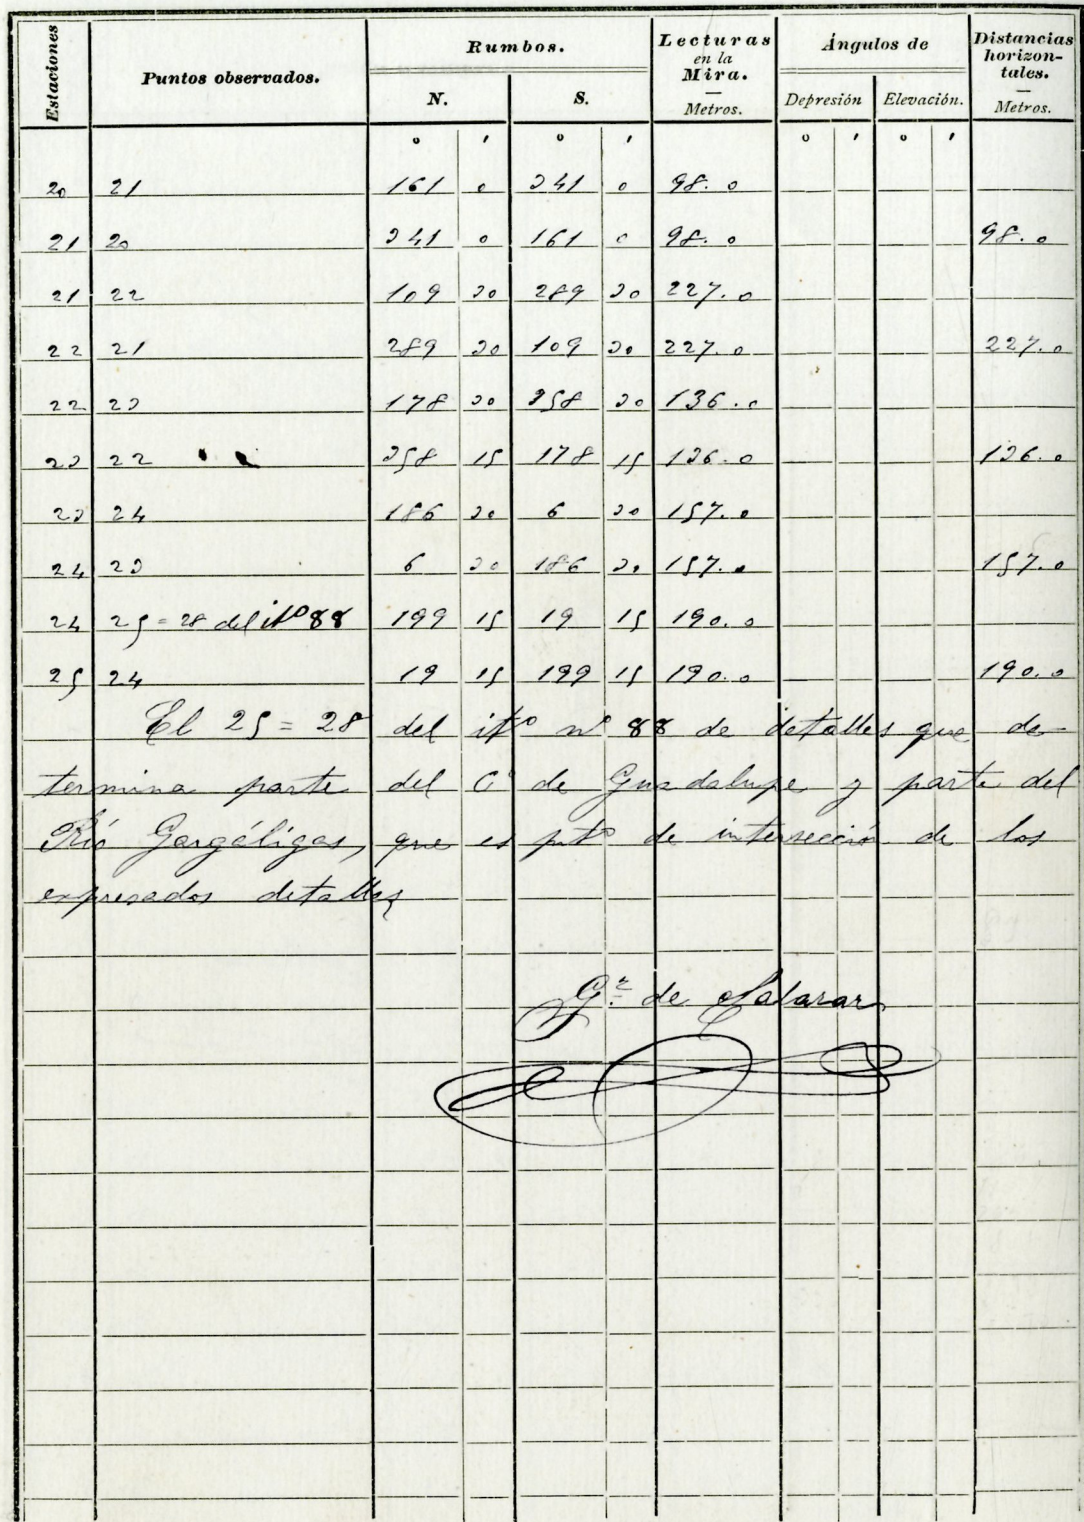 Estaciones Puntos observados. Rumbos. Lecturas en la Mira. Ángulos de Distancias horizon-tales.
N. S. Metros. Depresión Elevación. Metros.
o ' o ' o ' o '
20 21 161 0 341 0 98.0
21 20 341 0 161 0 98.0 98.0
21 22 109 30 289 30 227.0
22 21 289 30 109 30 227.0 227.0
22 23 178 30 358 30 136.0
23 22 358 15 178 15 136.0 136.0
23 24 186 30 6 30 157.0
24 23 6 30 186 30 157.0 157.0
24 25=28 del itº 88 199 15 19 15 190.0
25 24 19 15 199 15 190.0 190.0
El 25 = 28 del itº nº 88 de detalles que de-
termina parte del Cº de Guadalupe y parte del
Río Gargáligas, que es ptº de intersección de los
expresados detalles
Gz de Salazar